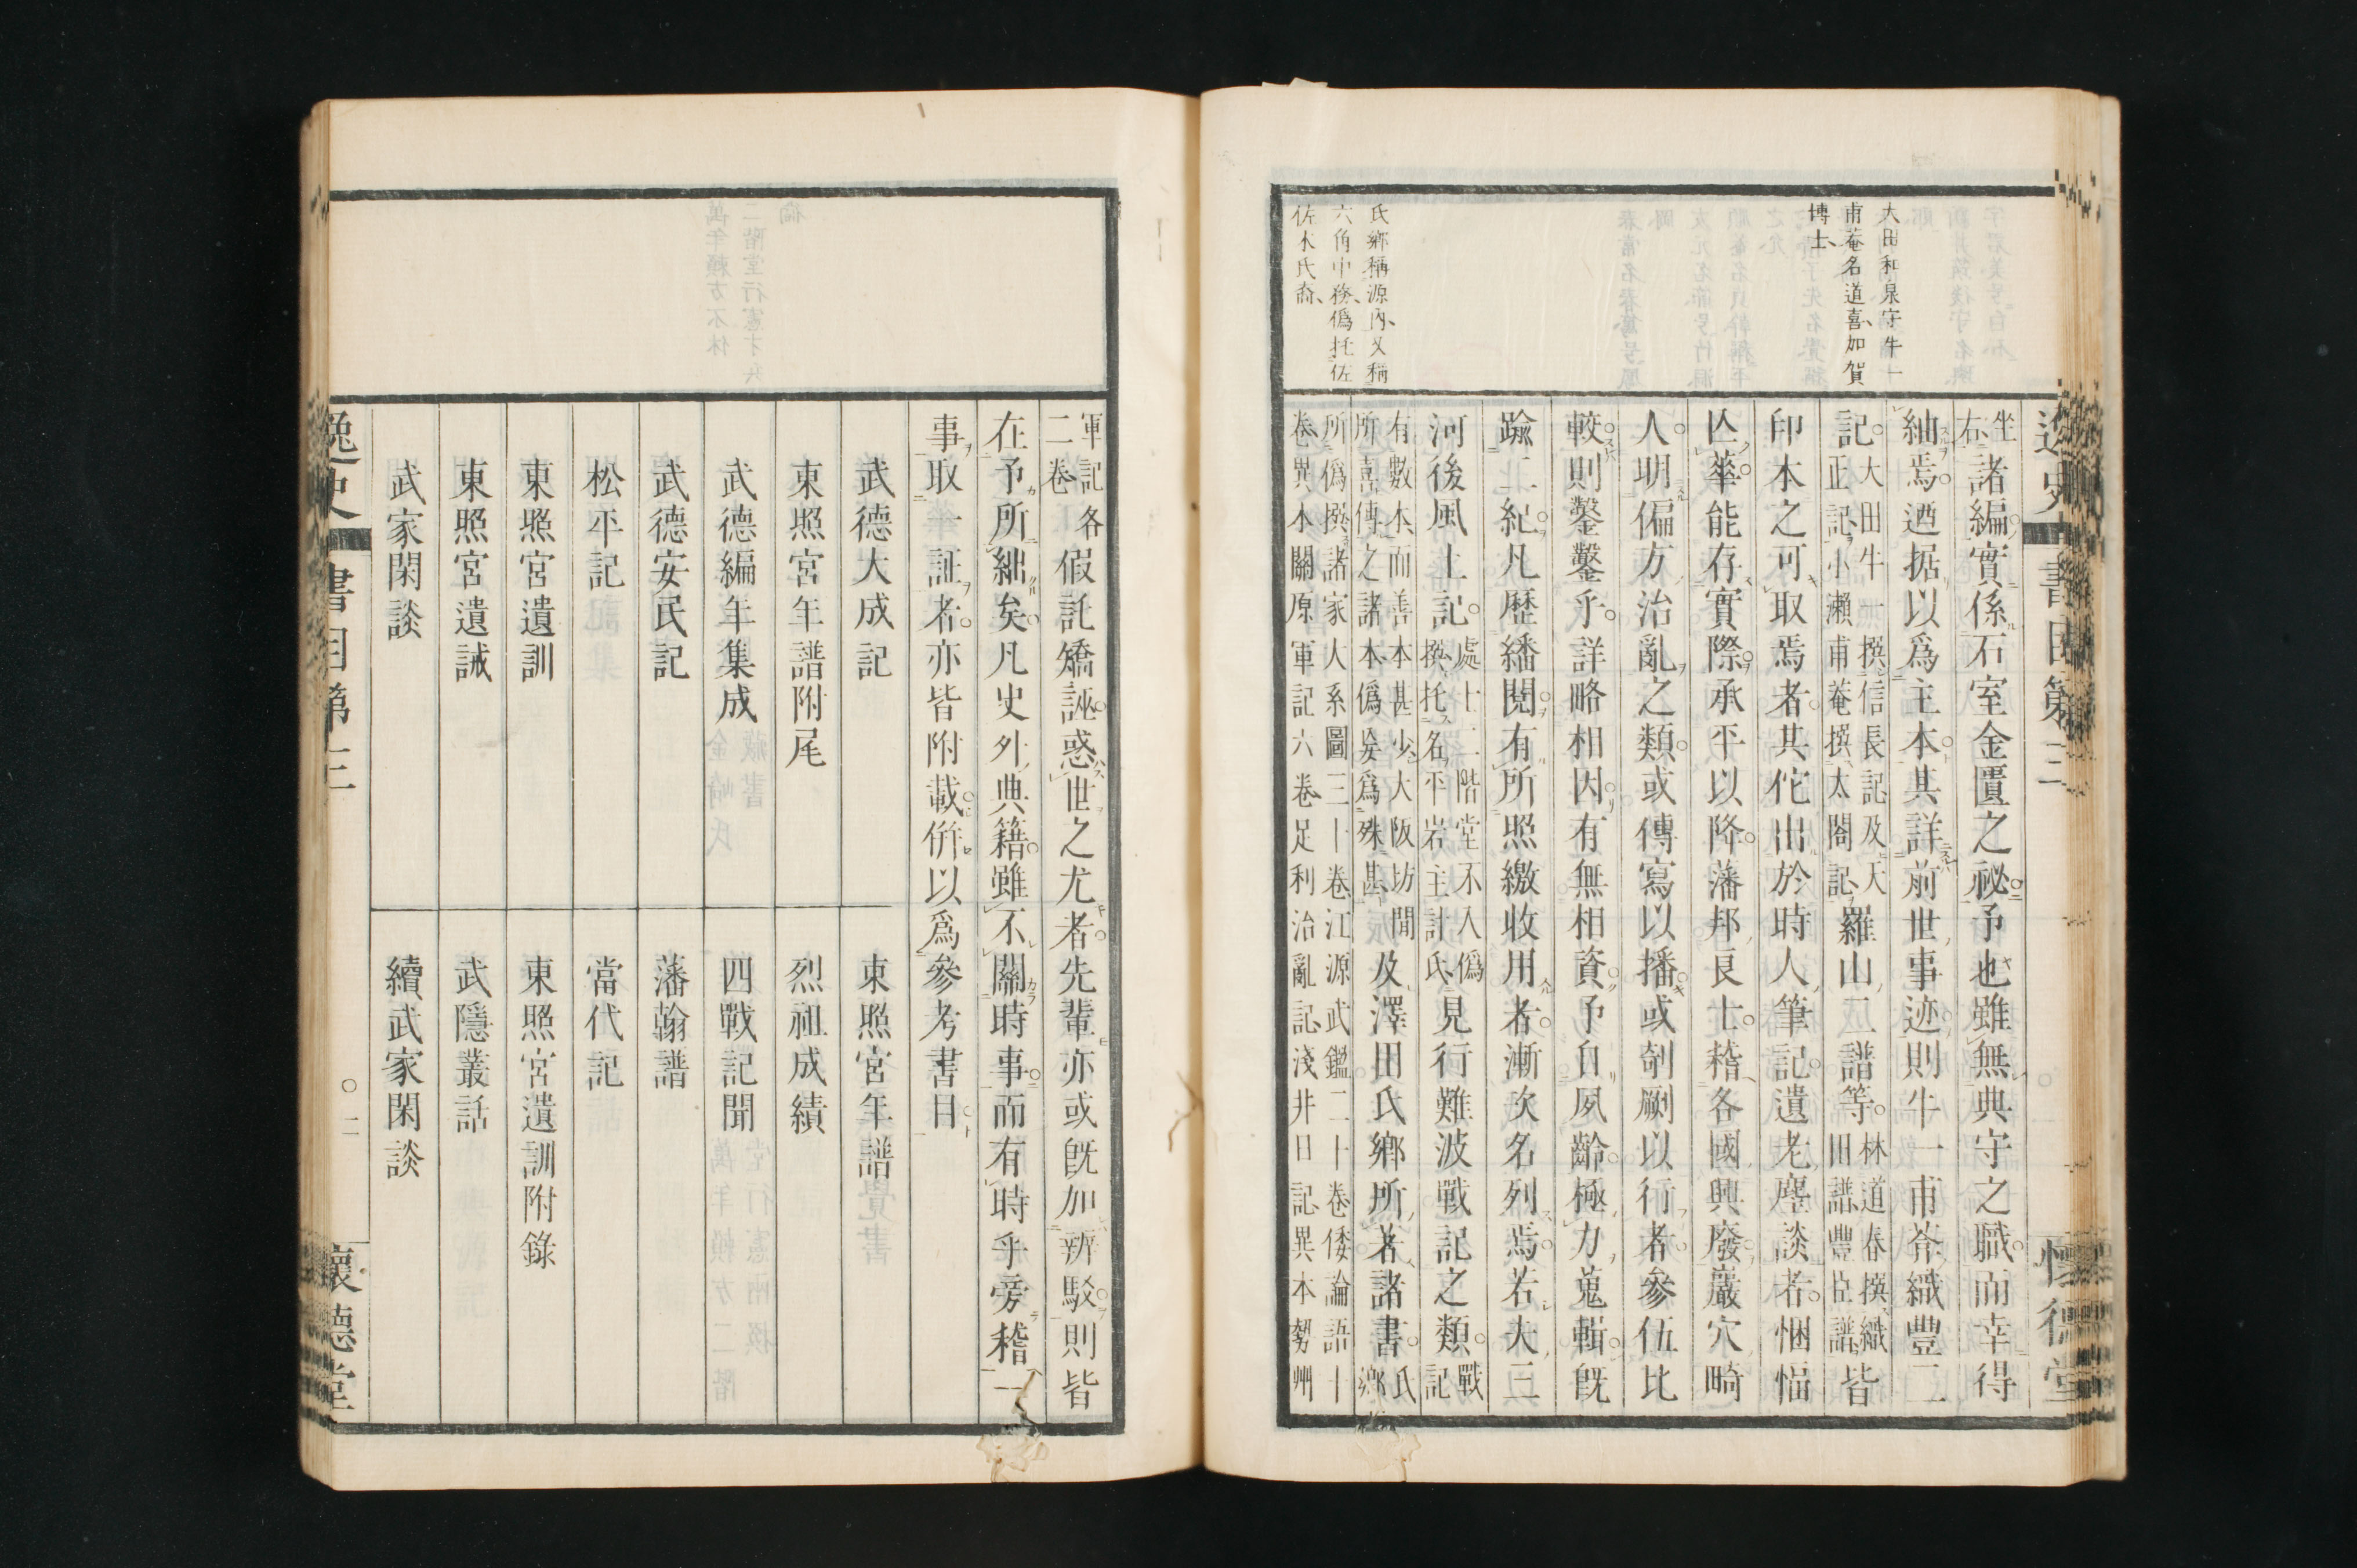 逸史 書目第三 懷德堂
大田和泉守牛一
甫菴名道喜加賀
博士
氏鄉稱源內又稱
六角中務僞托佐
佐木氏裔
坐右諸編實係石室金匱之祕予也雖無典守之職而幸得
紬焉迺据以爲主本其詳前世事迹則牛一甫菴織豐二
記大田牛一撰信長記及天正記小瀨甫菴撰太閤記羅山二譜等林道春撰織田譜豐臣譜皆
印本之可取焉者其佗出於時人筆記遺老麈談者悃愊
亾華能存實際承平以降藩邦良士稽各國興廢巖穴畸
人明偏方治亂之類或傳寫以播或剞劂以行者參伍比
較則鑿鑿乎詳略相因有無相資予自夙齡極力蒐輯旣
踰二紀凡歷繙閱有所照繳收用者漸次名列焉若夫三
河後風土記處士二階堂不入僞撰托名平岩主計氏見行難波戰記之類戰記
有數本而善本甚少大阪坊間所喜傳之諸本僞妄爲殊甚及澤田氏鄉所著諸書氏鄉
所僞撰諸家大系圖三十卷江源武鑑二十卷倭論語十卷異本關原軍記六卷足利治亂記淺井日記異本勢州
軍記各二卷假託矯誣惑世之尤者先輩亦或旣加辨駁則皆
在予所絀矣凡史外典籍雖不關時事而有時乎旁稽一
事取一証者亦皆附載倂以爲參考書目
武德大成記 東照宮年譜
東照宮年譜附尾 烈祖成績
武德編年集成 四戰記聞
武德安民記 藩翰譜
松平記 當代記
東照宮遺訓 東照宮遺訓附錄
東照宮遺誡 武隱叢話
武家閑談 續武家閑談
逸史 書目第三 ○二 懷德堂